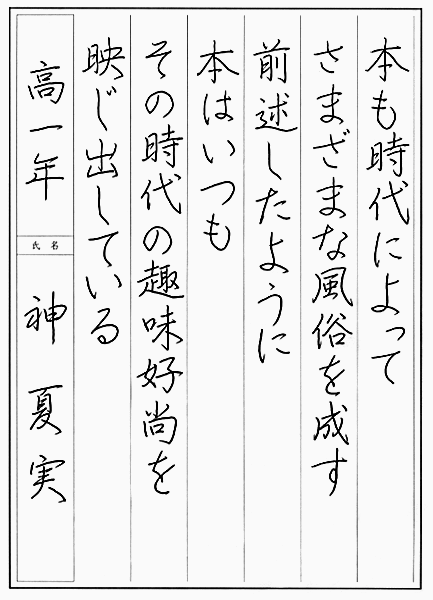 本も時代によって
さまざまな風俗を成す
前述したように
本はいつも
その時代の趣味好尚を
映じ出している
高一年
氏名
神 夏実